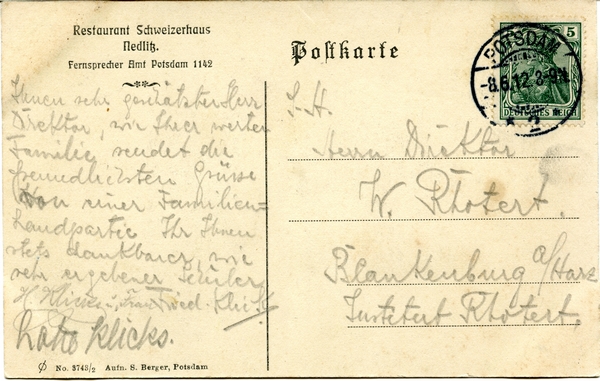 Restaurant Schweizerhaus
Nedlitz.
Fernsprecher Amt Potsdam 1142
Postkarte
5
DEUTSCHES REICH
POTSDAM
-8.6.12.3-9N.
* 2
Ihnen sehr geschätzter Herr
Direktor, wie Ihrer werten
Familie sendet die
freundlichsten Grüsse
von einer Familien-
Landpartie Ihr Ihnen
stets dankbarer, wie
sehr ergebener Schüler
H.
S. H.
Herrn Direktor
W. Rhotert.
Blankenburg a/Harz
Institut Rhotert.
No. 3743/2 Aufn. S. Berger, Potsdam